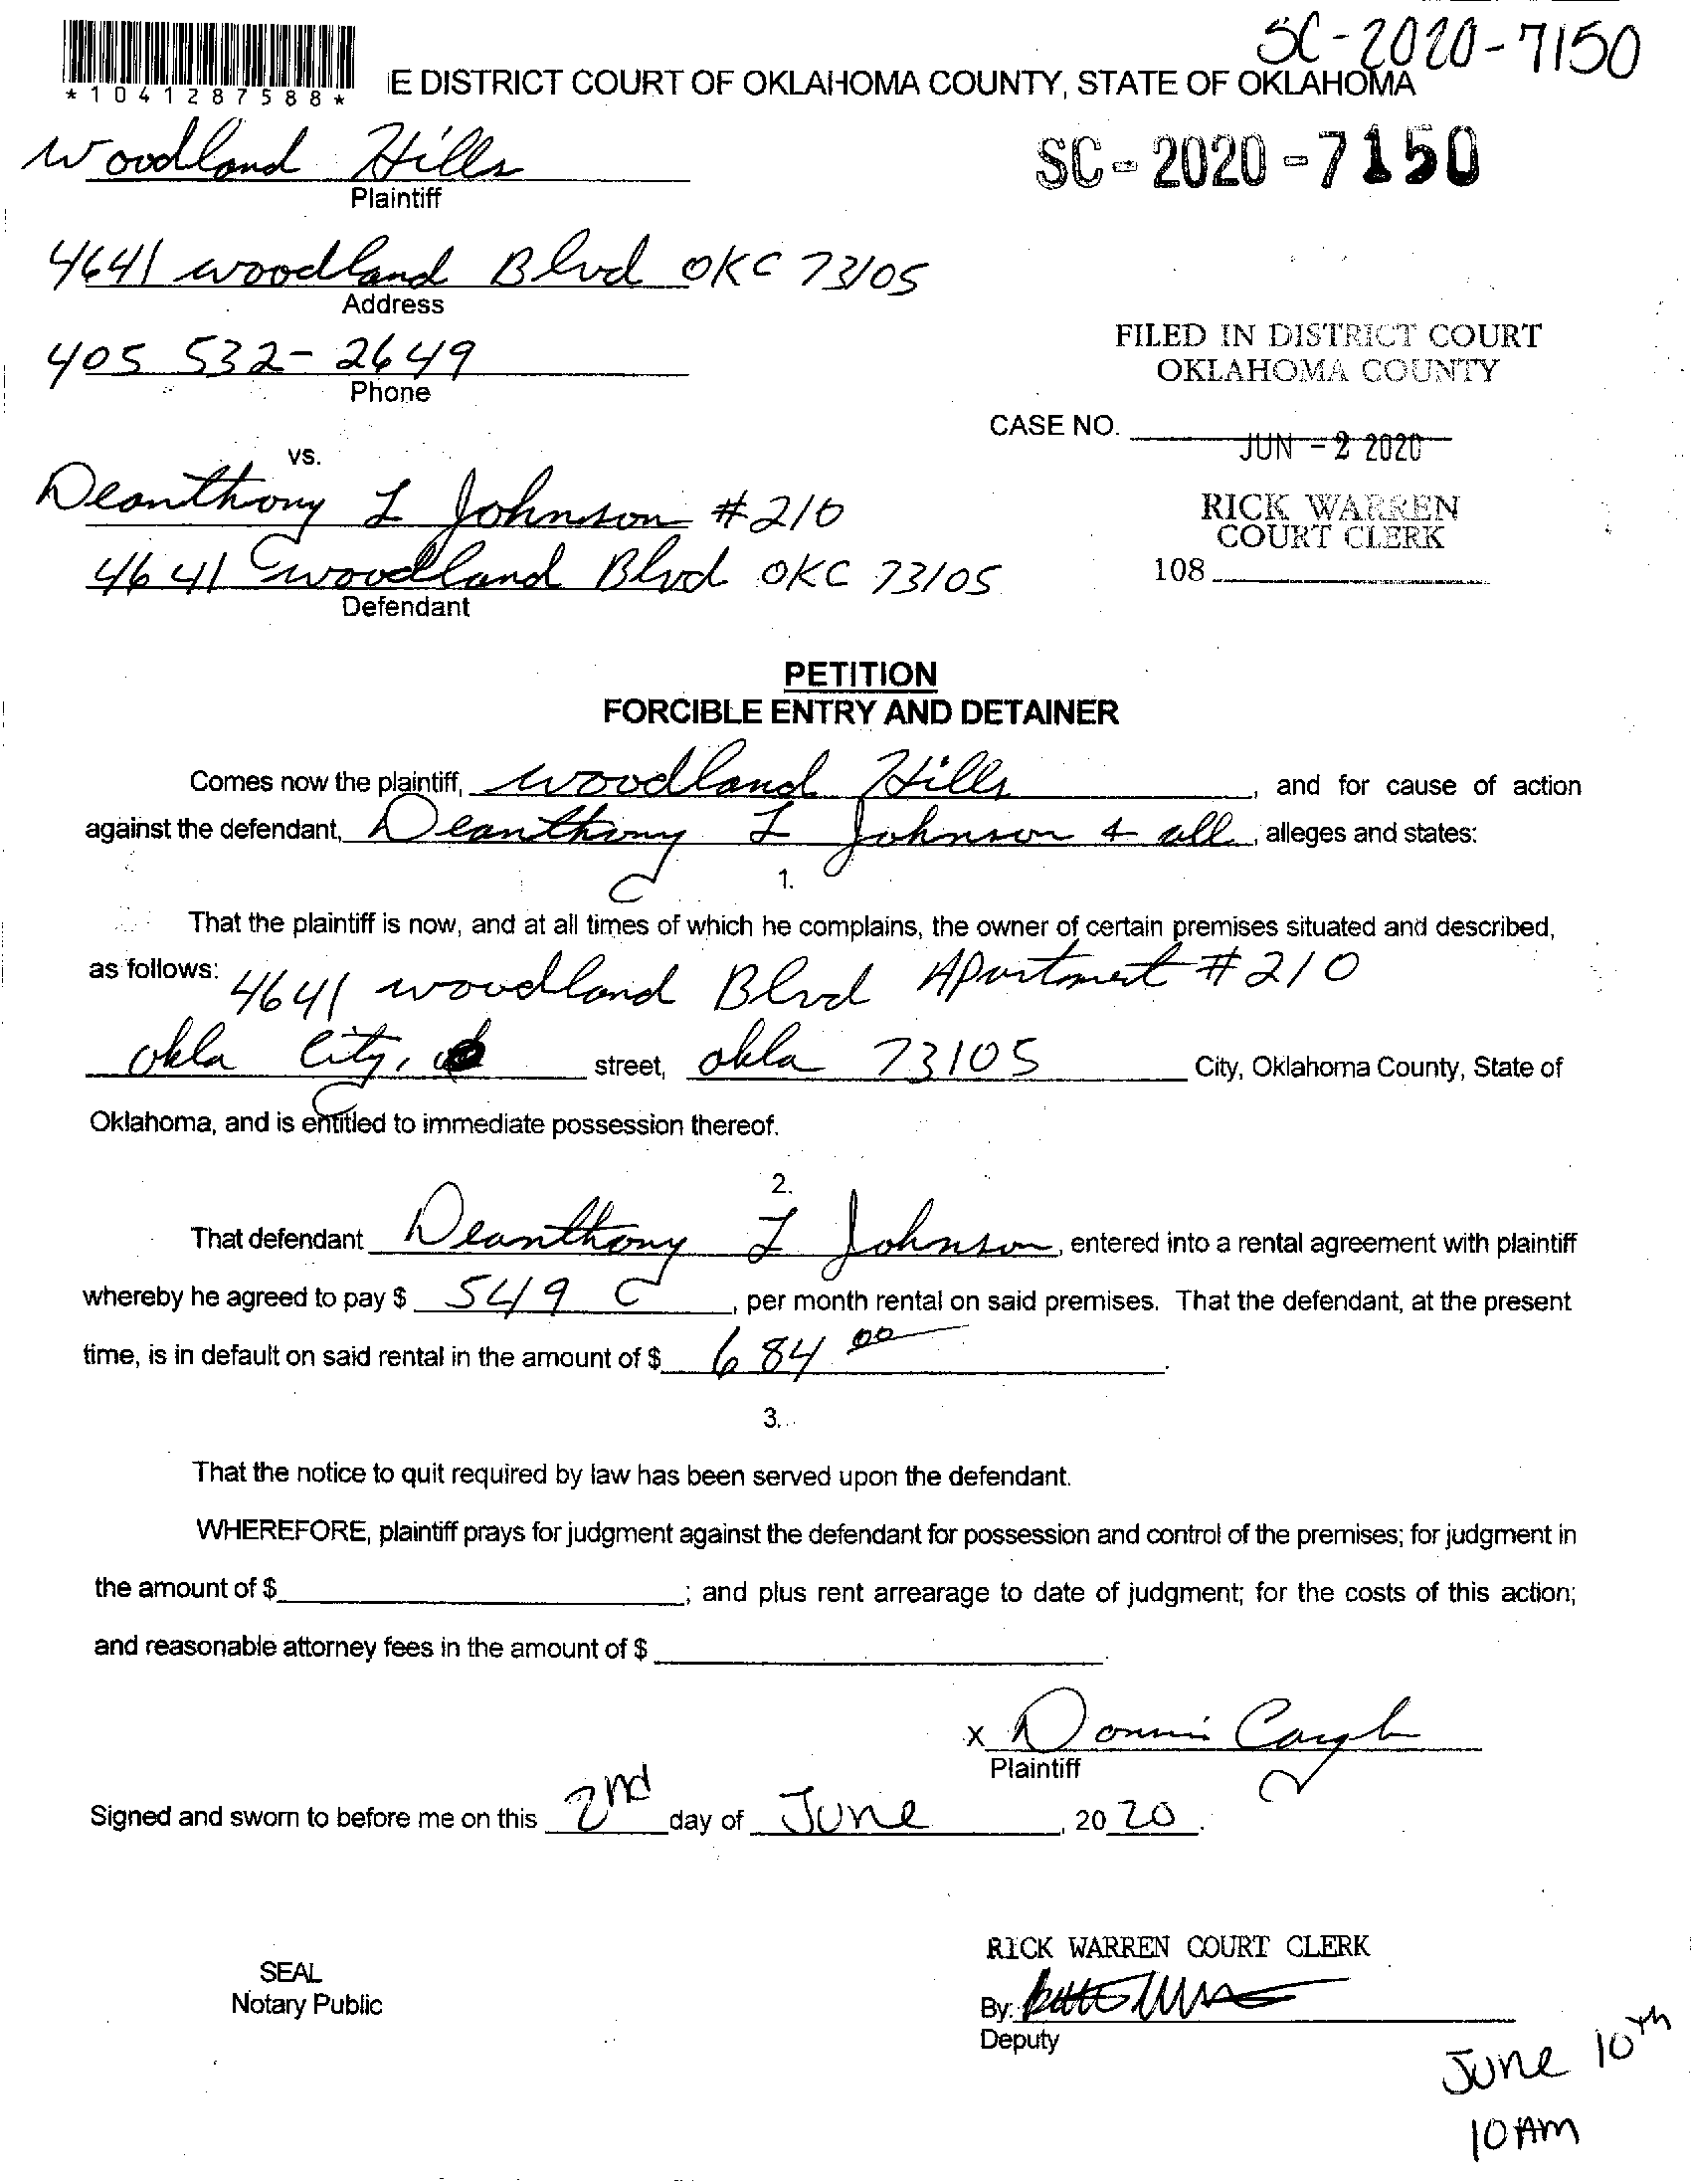 SC-2020-7150
*1041287588*
E DISTRICT COURT OF OKLAHOMA COUNTY, STATE OF OKLAHOMA
Woodland Hills
SC-2020-7150
Plaintiff
4641 woodland Blvd OKC 73105
Address
FILED IN DISTRICT COURT
OKLAHOMA COUNTY
405 532-2649
Phone
CASE NO.
JUN -2 2020
vs.
Deanthony L Johnson #210
RICK WARREN
COURT CLERK
4641 woodland Blvd OKC 73105
108
Defendant
PETITION
FORCIBLE ENTRY AND DETAINER
Comes now the plaintiff, woodland Hills, and for cause of action
against the defendant, Deanthony L Johnson & all, alleges and states:
1.
That the plaintiff is now, and at all times of which he complains, the owner of certain premises situated and described,
as follows: 4641 woodland Blvd Apartment #210
okla City, street, okla 73105 City, Oklahoma County, State of
Oklahoma, and is entitled to immediate possession thereof.
2.
That defendant Deanthony L Johnson, entered into a rental agreement with plaintiff
whereby he agreed to pay $ 549, per month rental on said premises. That the defendant, at the present
time, is in default on said rental in the amount of $ 684 00.
3.
That the notice to quit required by law has been served upon the defendant.
WHEREFORE, plaintiff prays for judgment against the defendant for possession and control of the premises; for judgment in
the amount of $ ; and plus rent arrearage to date of judgment; for the costs of this action;
and reasonable attorney fees in the amount of $ .
x Donni
Plaintiff
Signed and sworn to before me on this 2nd day of June, 2020.
RICK WARREN COURT CLERK
SEAL
Notary Public
By:
Deputy
June 10th
10 AM